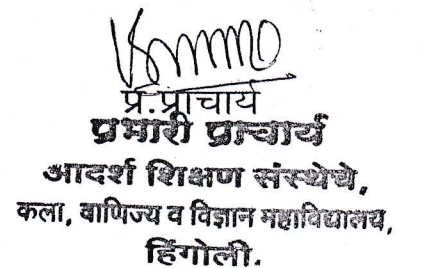 प्र.प्राचार्य
प्रभारी प्राचार्य
आदर्श शिक्षण संस्थेचे,
कला, वाणिज्य व विज्ञान महाविद्यालय,
हिंगोली.